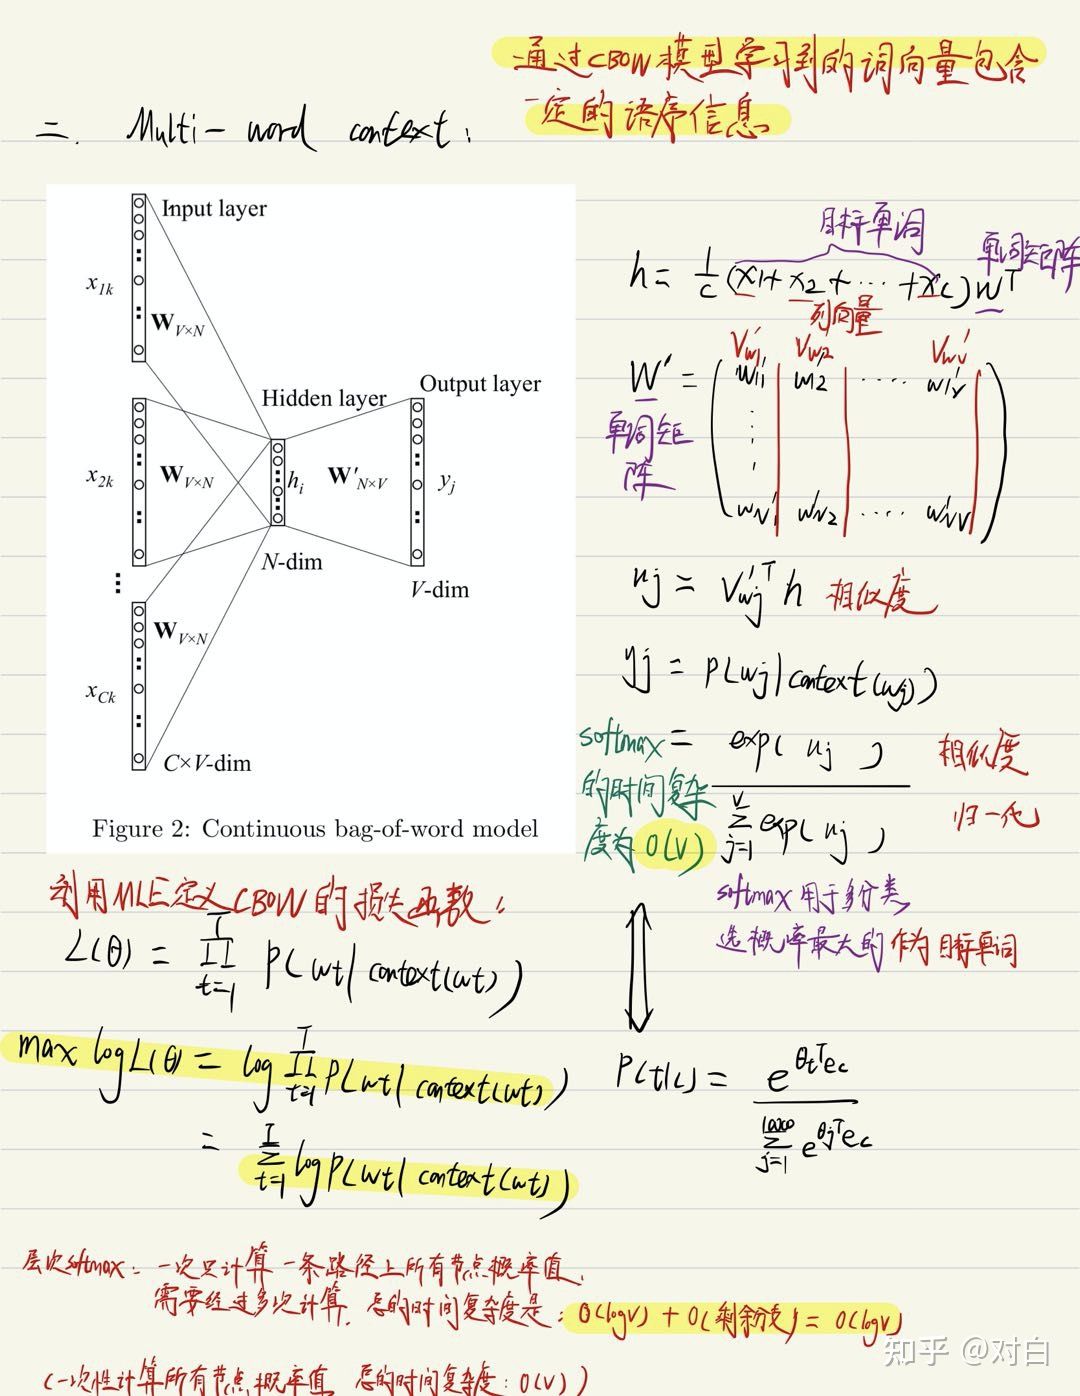 通过CBOW模型学习到的词向量包含
一定的语序信息
二. Multi-word context:
Input layer
x1k
W V×N
Hidden layer
Output layer
x2k
W V×N
hi
W'N×V
yj
N-dim
V-dim
W V×N
xCk
C×V-dim
Figure 2: Continuous bag-of-word model
目标单词
单词矩阵
h = 1/c (x1+x2+⋯+xc)W^T
列向量
Vw1' Vw2' Vwv'
W' = ( w11' w12' ⋯⋯ w1v'
单词矩
阵
wN1' wN2' ⋯⋯ wNV' )
uj = Vwj'^T h 相似度
yj = P(wj|context(wj))
softmax = exp(uj) / Σ_{j=1}^{V} exp(uj)
的时间复杂
度为O(V)
相似度
归一化
softmax用于多分类
选概率最大的作为目标单词
利用MLE定义CBOW的损失函数:
L(θ) = ∏_{t=1}^{T} P(wt|context(wt))
max logL(θ) = log ∏_{t=1}^{T} P(wt|context(wt))
= Σ_{t=1}^{T} log P(wt|context(wt))
P(t|c) = e^{θt^T ec} / Σ_{j=1}^{10000} e^{θj^T ec}
层次softmax: 一次只计算一条路径上所有节点概率值,
需要经过多次计算. 总的时间复杂度是: O(logV) + O(剩余分支) = O(logV)
(一次性计算所有节点概率值 总的时间复杂度: O(V))
知乎 @对白